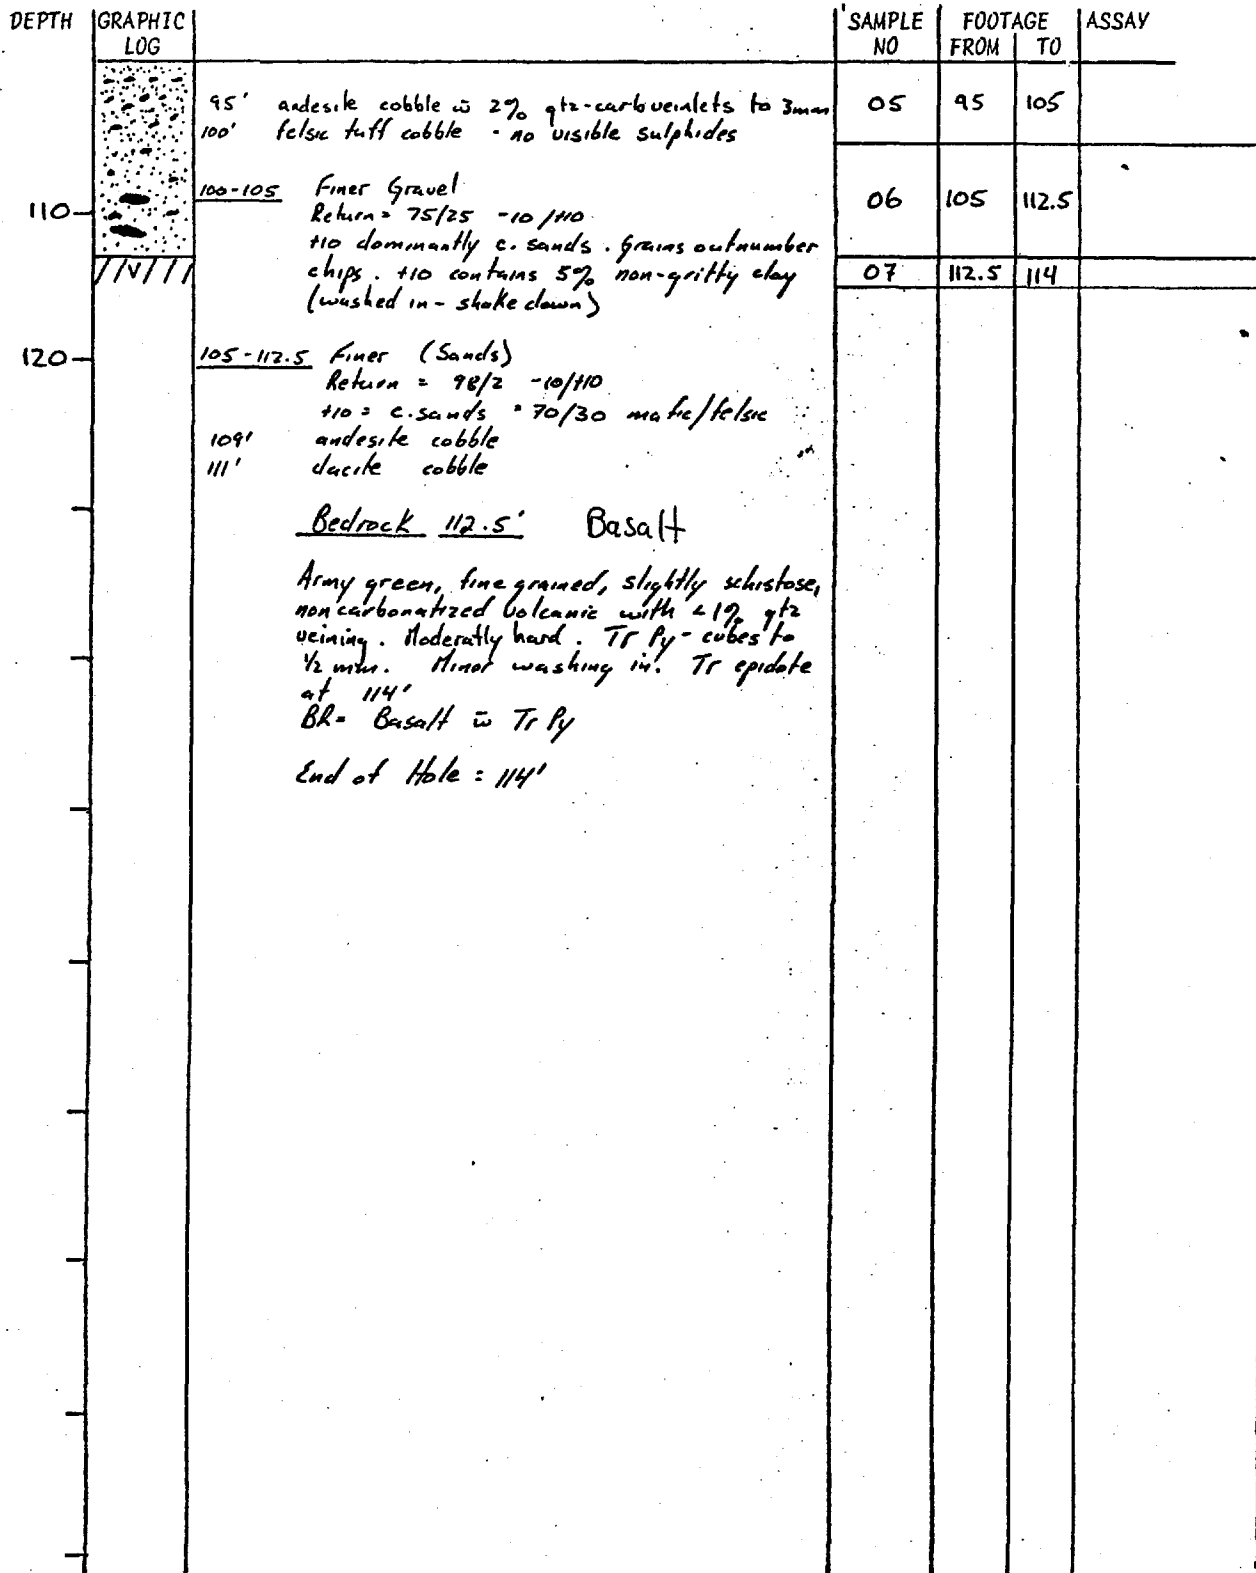 DEPTH GRAPHIC LOG SAMPLE NO FOOTAGE FROM TO ASSAY
95' andesite cobble w̄ 2% qtz-carb veinlets to 3mm 05 95 105
100' felsic tuff cobble - no visible sulphides
100-105 Finer Gravel
110 Return = 75/25 -10/+10 06 105 112.5
+10 dominantly c. sands. Grains outnumber
chips. +10 contains 5% non-gritty clay 07 112.5 114
(washed in - shake down)
120 105-112.5 Finer (Sands)
Return = 98/2 -10/+10
+10 = c. sands = 70/30 mafic/felsic
109' andesite cobble
111' dacite cobble
Bedrock 112.5' Basalt
Army green, fine grained, slightly schistose,
noncarbonatized volcanic with <1% qtz
veining. Moderatly hard. Tr Py - cubes to
1/2 mm. Minor washing in. Tr epidote
at 114'
BR = Basalt w̄ Tr Py
End of Hole = 114'